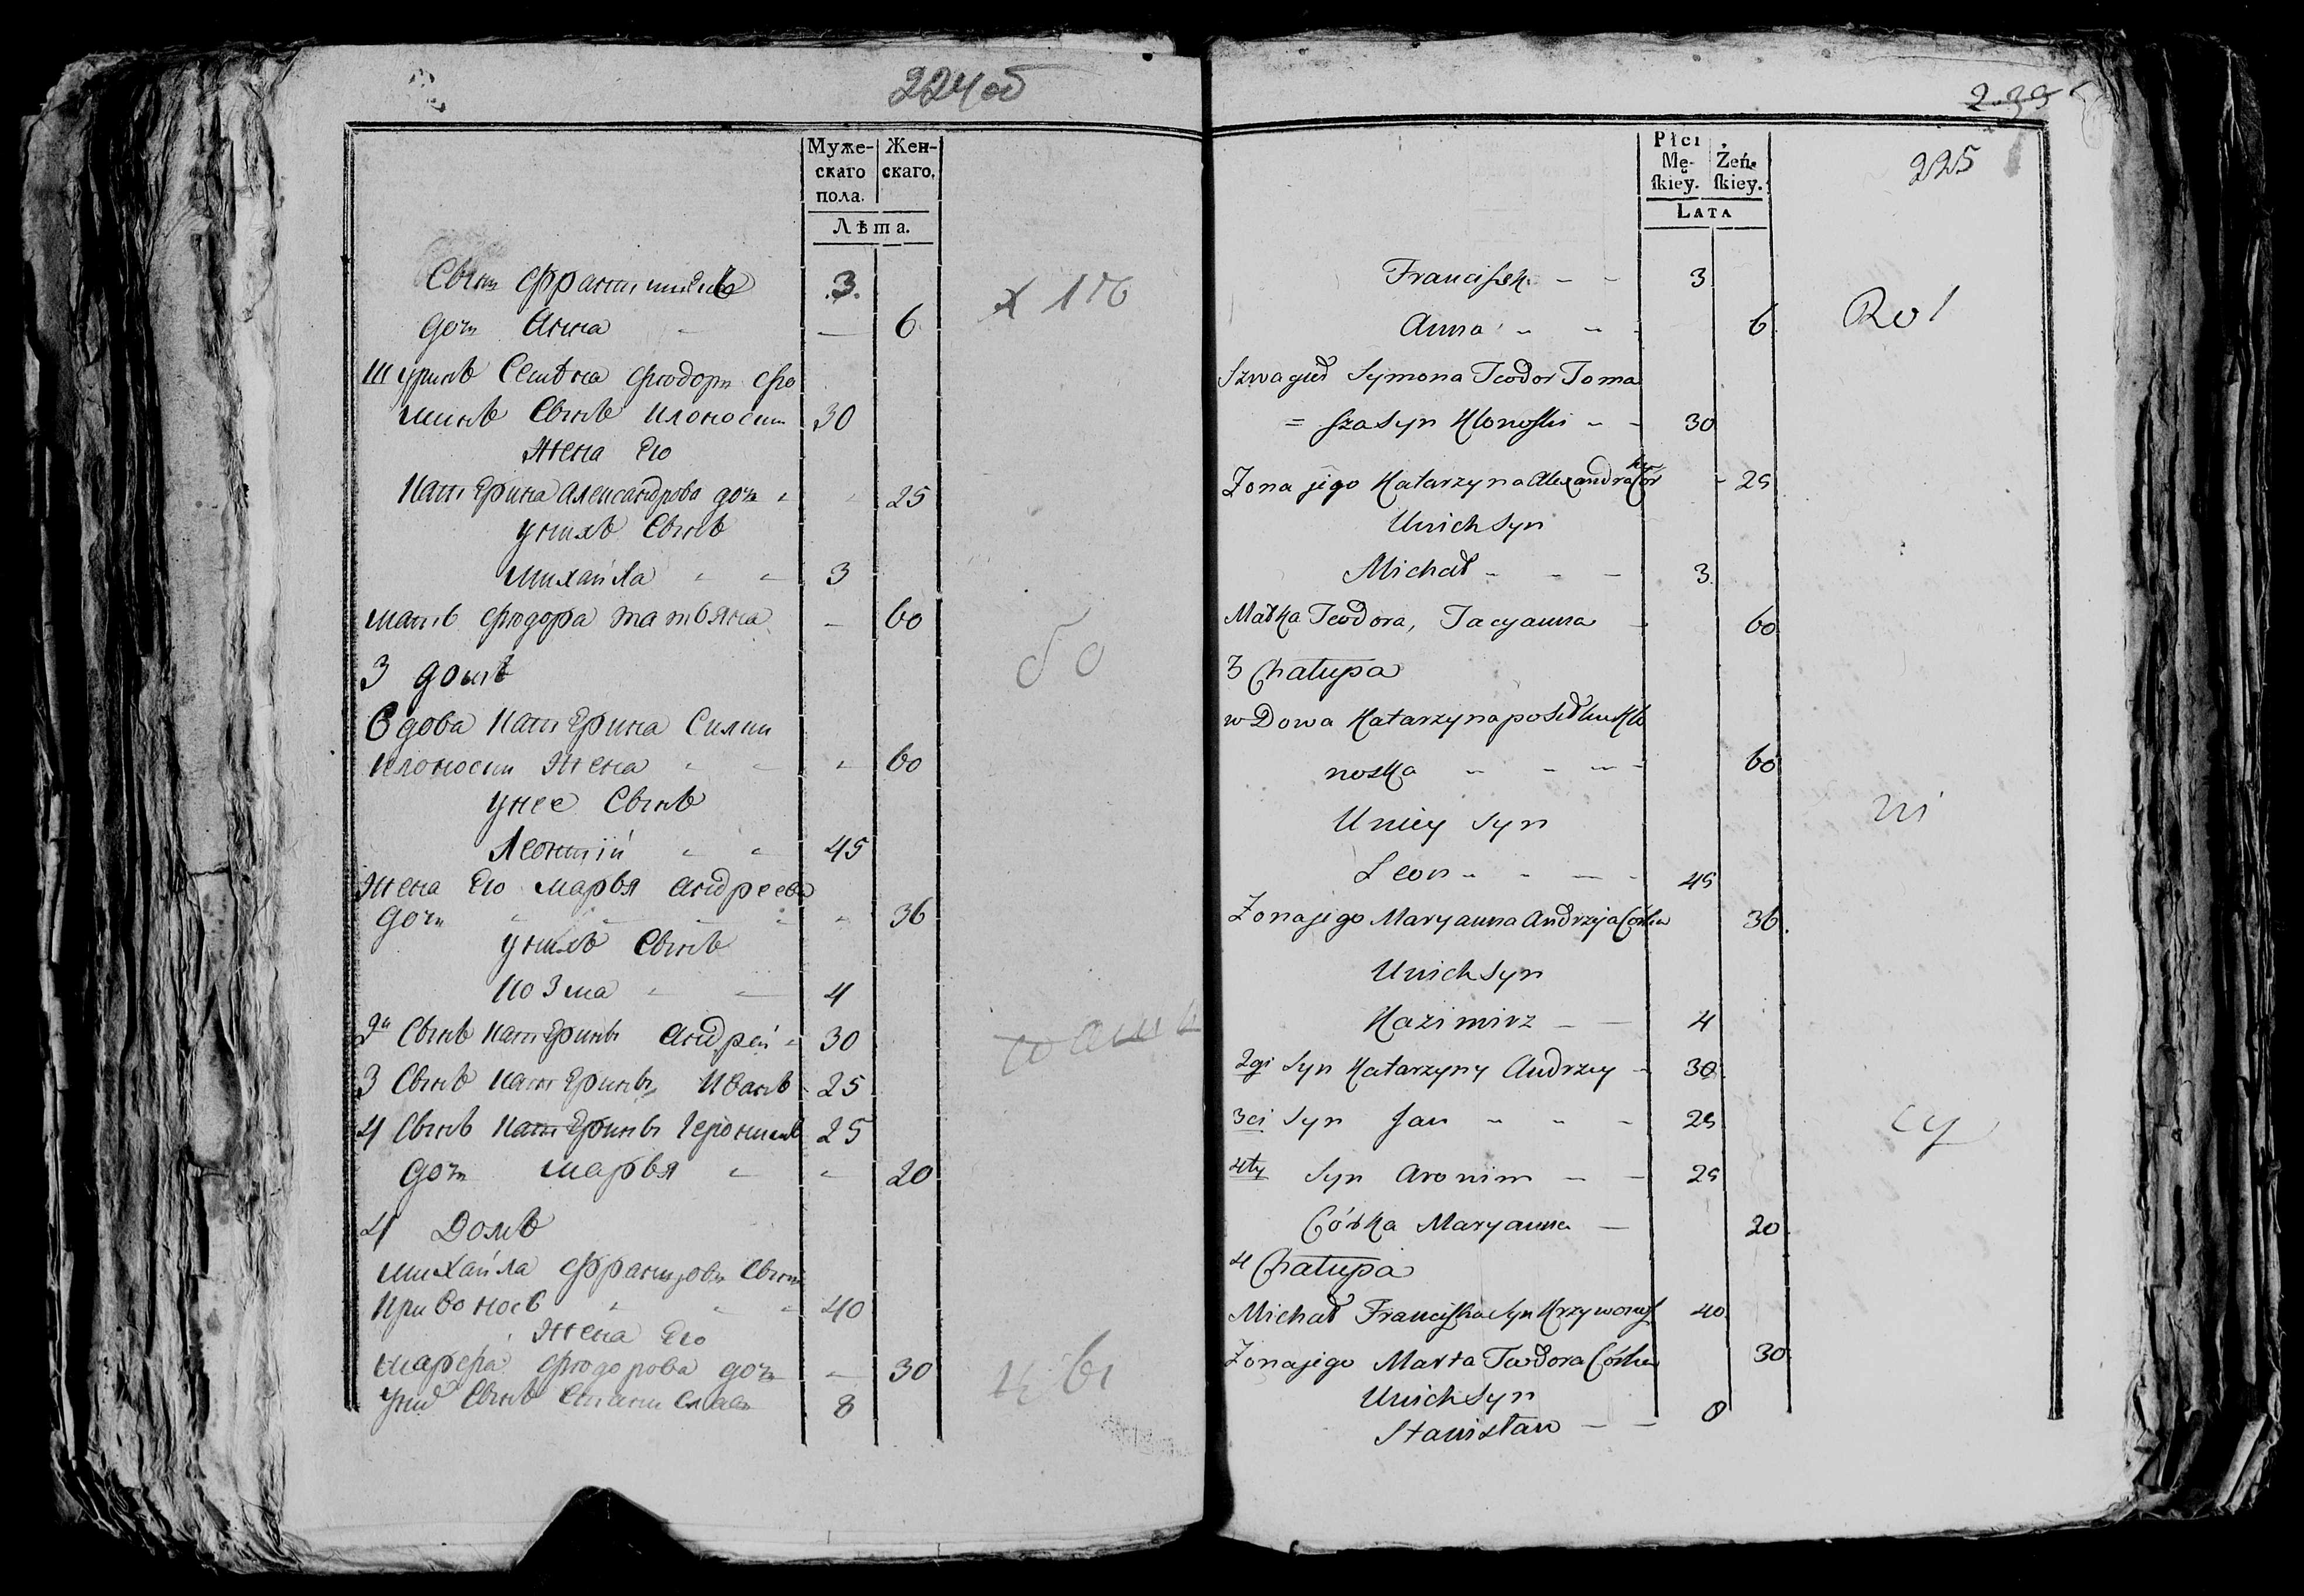 224об
Муже-
скаго
пола.
Жен-
скаго.
Лѣта.
Сынъ Францишекъ 3.
дочь Анна — 6
Шуринъ Семѣна Фюдоръ Фо
минъ Сынъ Клоноски 30
Жена Его
Катерина Александрова дочь 25
Уныхъ Сынъ
Михайла 3
Мать Фюдора Татьяна — 60
3 домъ
Вдова Катерина Силки
Клоноски Жена 60
Унее Сынъ
Леонтій 45
Жена Его Марья Андреева
дочь 36
Унихъ Сынъ
Козма 4
2й Сынъ Катерины Андрей 30
3 Сынъ Катерины Иванъ 25
4 Сынъ Катерины Геронимъ 25
дочь Марья 20
4 Домъ
Михайла Францовъ Сынъ
Кривоносъ 40
Жена Его
Марфа Фюдорова дочь — 30
Сынъ Станиславъ 8
бо
цы
239
225
Płci
Mę-
skiey.
Żeń-
skiey.
LATA
Franciszek 3
Anna 6
Rol
Szwagier Symona Teodor Toma
= sza Syn Klonoski 30
Zona jego Katarzyna Alexandra Cór
ka 25
Unich Syn
Michał 3
Matka Teodora, Tacyanna 60
3 Chałupa
wDowa Katarzyna po Sidku Klo
noska 60
ni
Uniey Syn
Leon 45
Zona jego Maryanna Andrzeja Córka 36
Unich Syn
Kazimirz 4
2gi Syn Katarzyny Andrzey 30
3ci Syn Jan 25
cy
4ty Syn Aronim 25
Córka Maryanna 20
4 Chałupa
Michał Franciszka Syn Krzywonos 40
Zona jego Marta Teodora Córka 30
Unich Syn
Stanisław 8